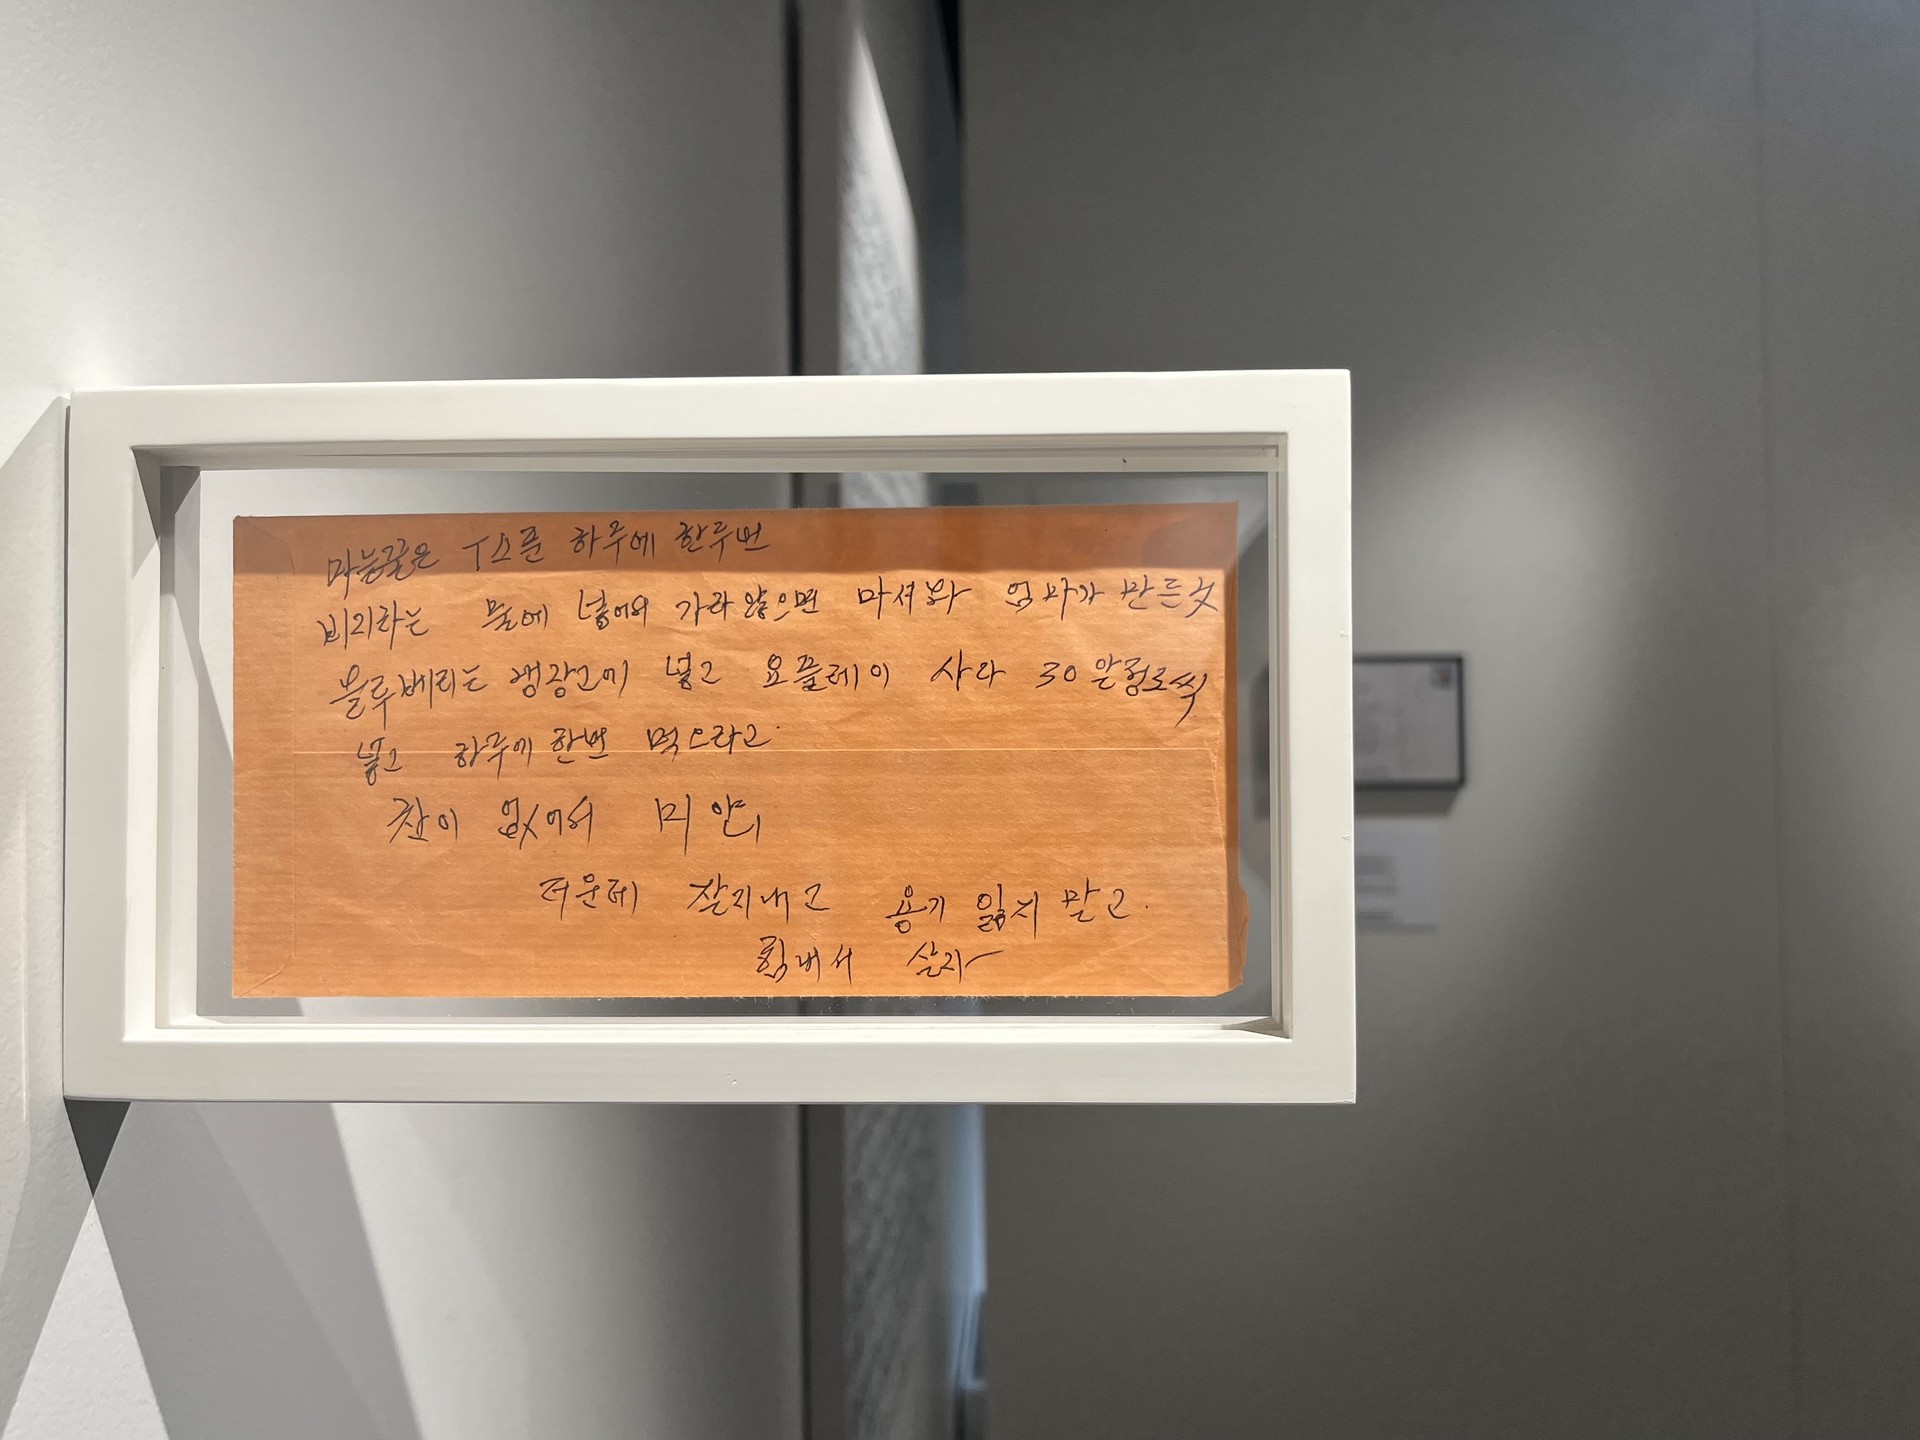 마늘꿀은 T스픈 하루에 한두번
비지라는 물에 넣어와 가라않으면 마셔봐 엄마가 만든것
불루베리는 냉장고에 넣고 요플레이 사라 30알정도씩
넣고 하루에 한번 먹으라고.
찬이 없어서 미안,
더운데 잘지내고 용기 잃지 말고.
힘내서 살자